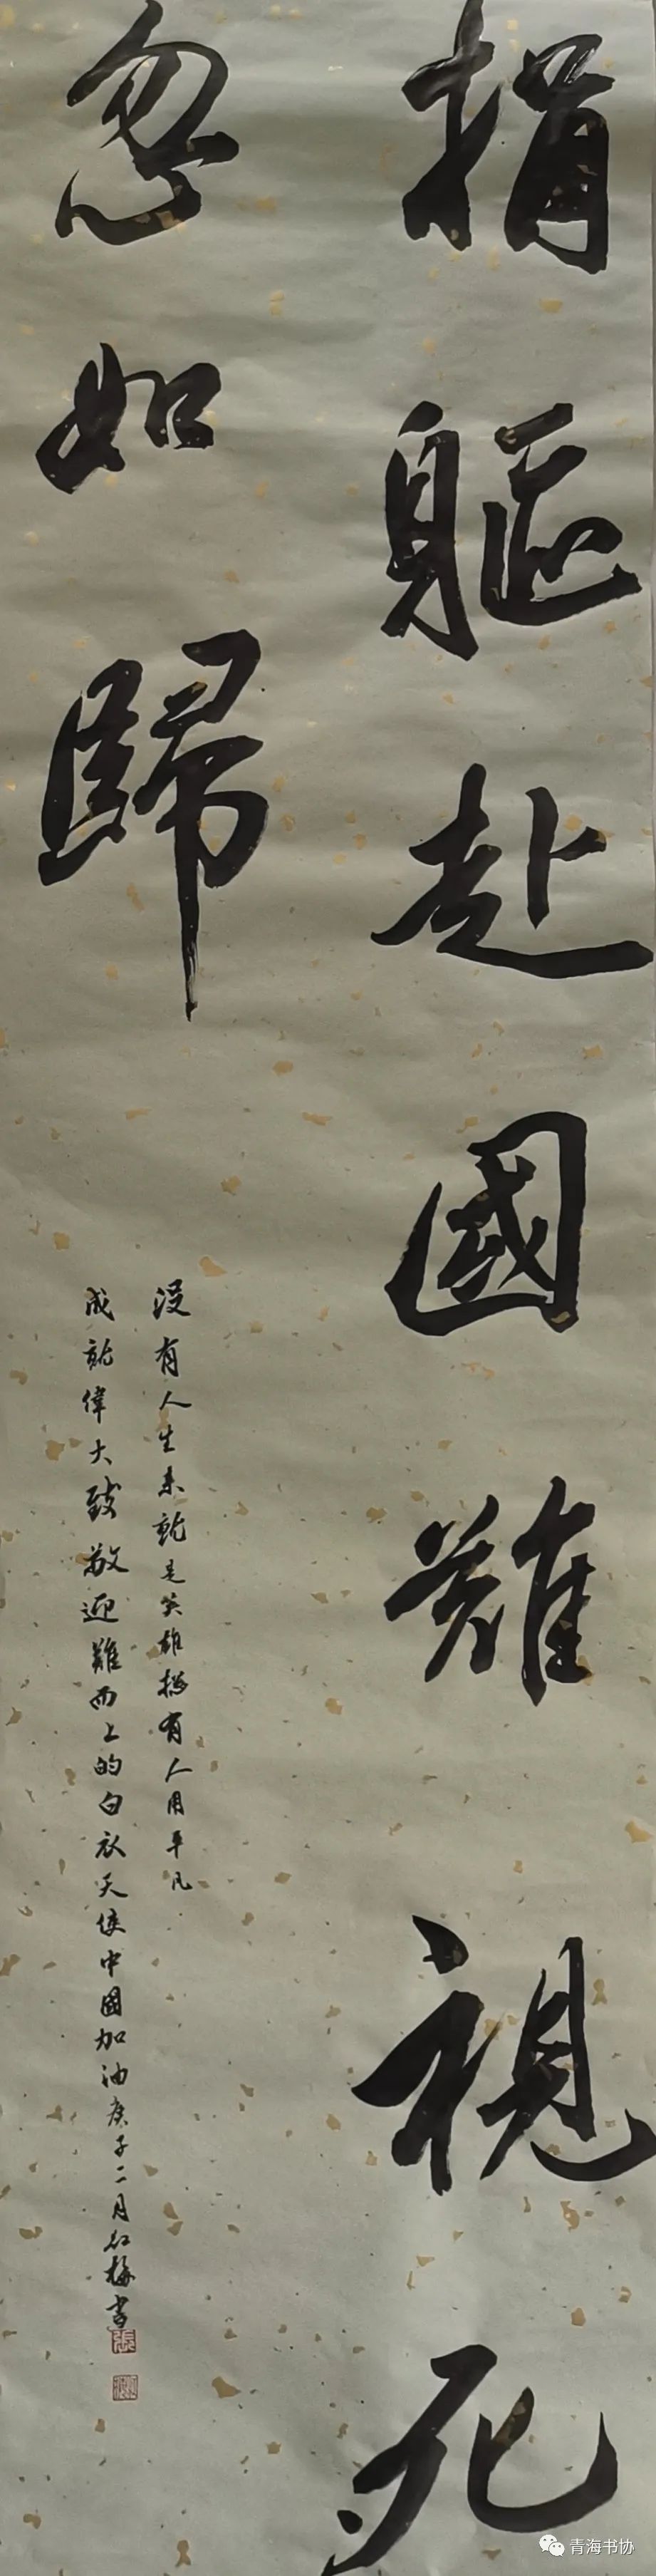 捐軀赴國難視死
忽如歸
沒有人生来就是英雄摠有人用平凡
成就偉大致敬迎難而上的白衣天使中國加油庚子二月红梅書
張
青海书协